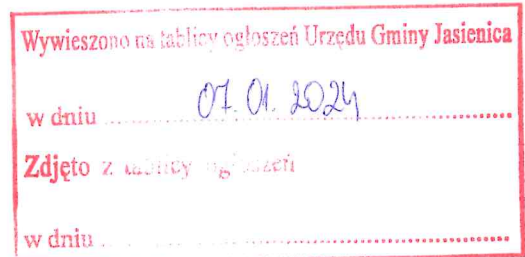 Wywieszono na tablicy ogłoszeń Urzędu Gminy Jasienica
w dniu ........ 07.01.2024 ........
Zdjęto z tablicy ogłoszeń
w dniu ........................